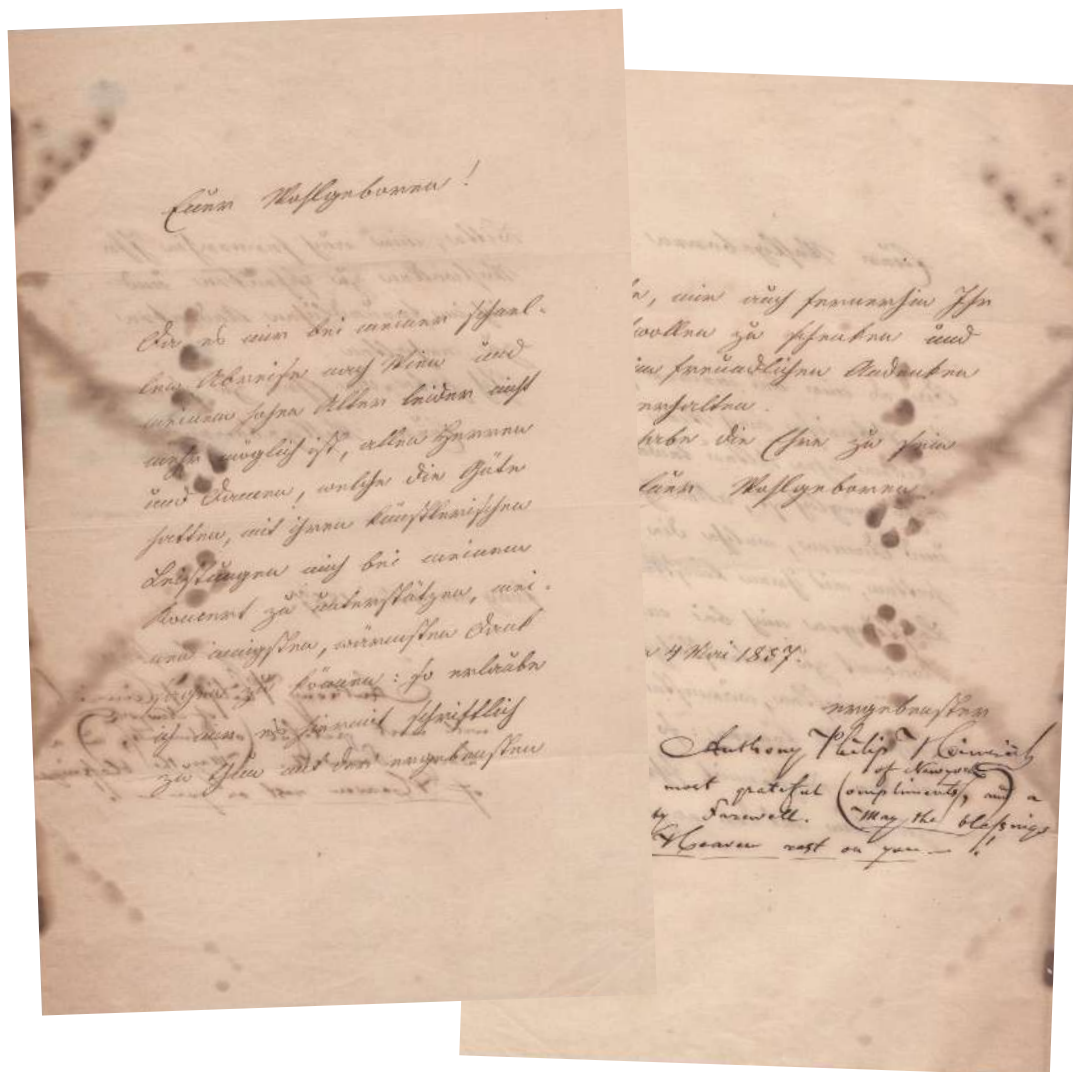 Euer Wohlgeboren!
Da es mir bei meiner schnel-
len Abreise nach Wien und
meinem hohen Alter leider nicht
mehr möglich ist, allen Herren
und Damen, welche die Güte
hatten, mit ihren künstlerischen
Leistungen mich bei meinem
Konzert zu unterstützen, mei-
nen innigsten, wärmsten Dank
sagen zu können: so erlaube
ich mir es hiermit schriftlich
zu thun mit der ergebensten
mir auch fernerhin Ihr
wollen zu schenken und
freundlichen Andenken
erhalten.
habe die Ehre zu sein
Euer Wohlgeboren
4 Mai 1857.
ergebenster
Anthony Philip Heinrich
of Newyork
most grateful Compliments, and a
Farewell. May the blessings
Heaven rest on you — !